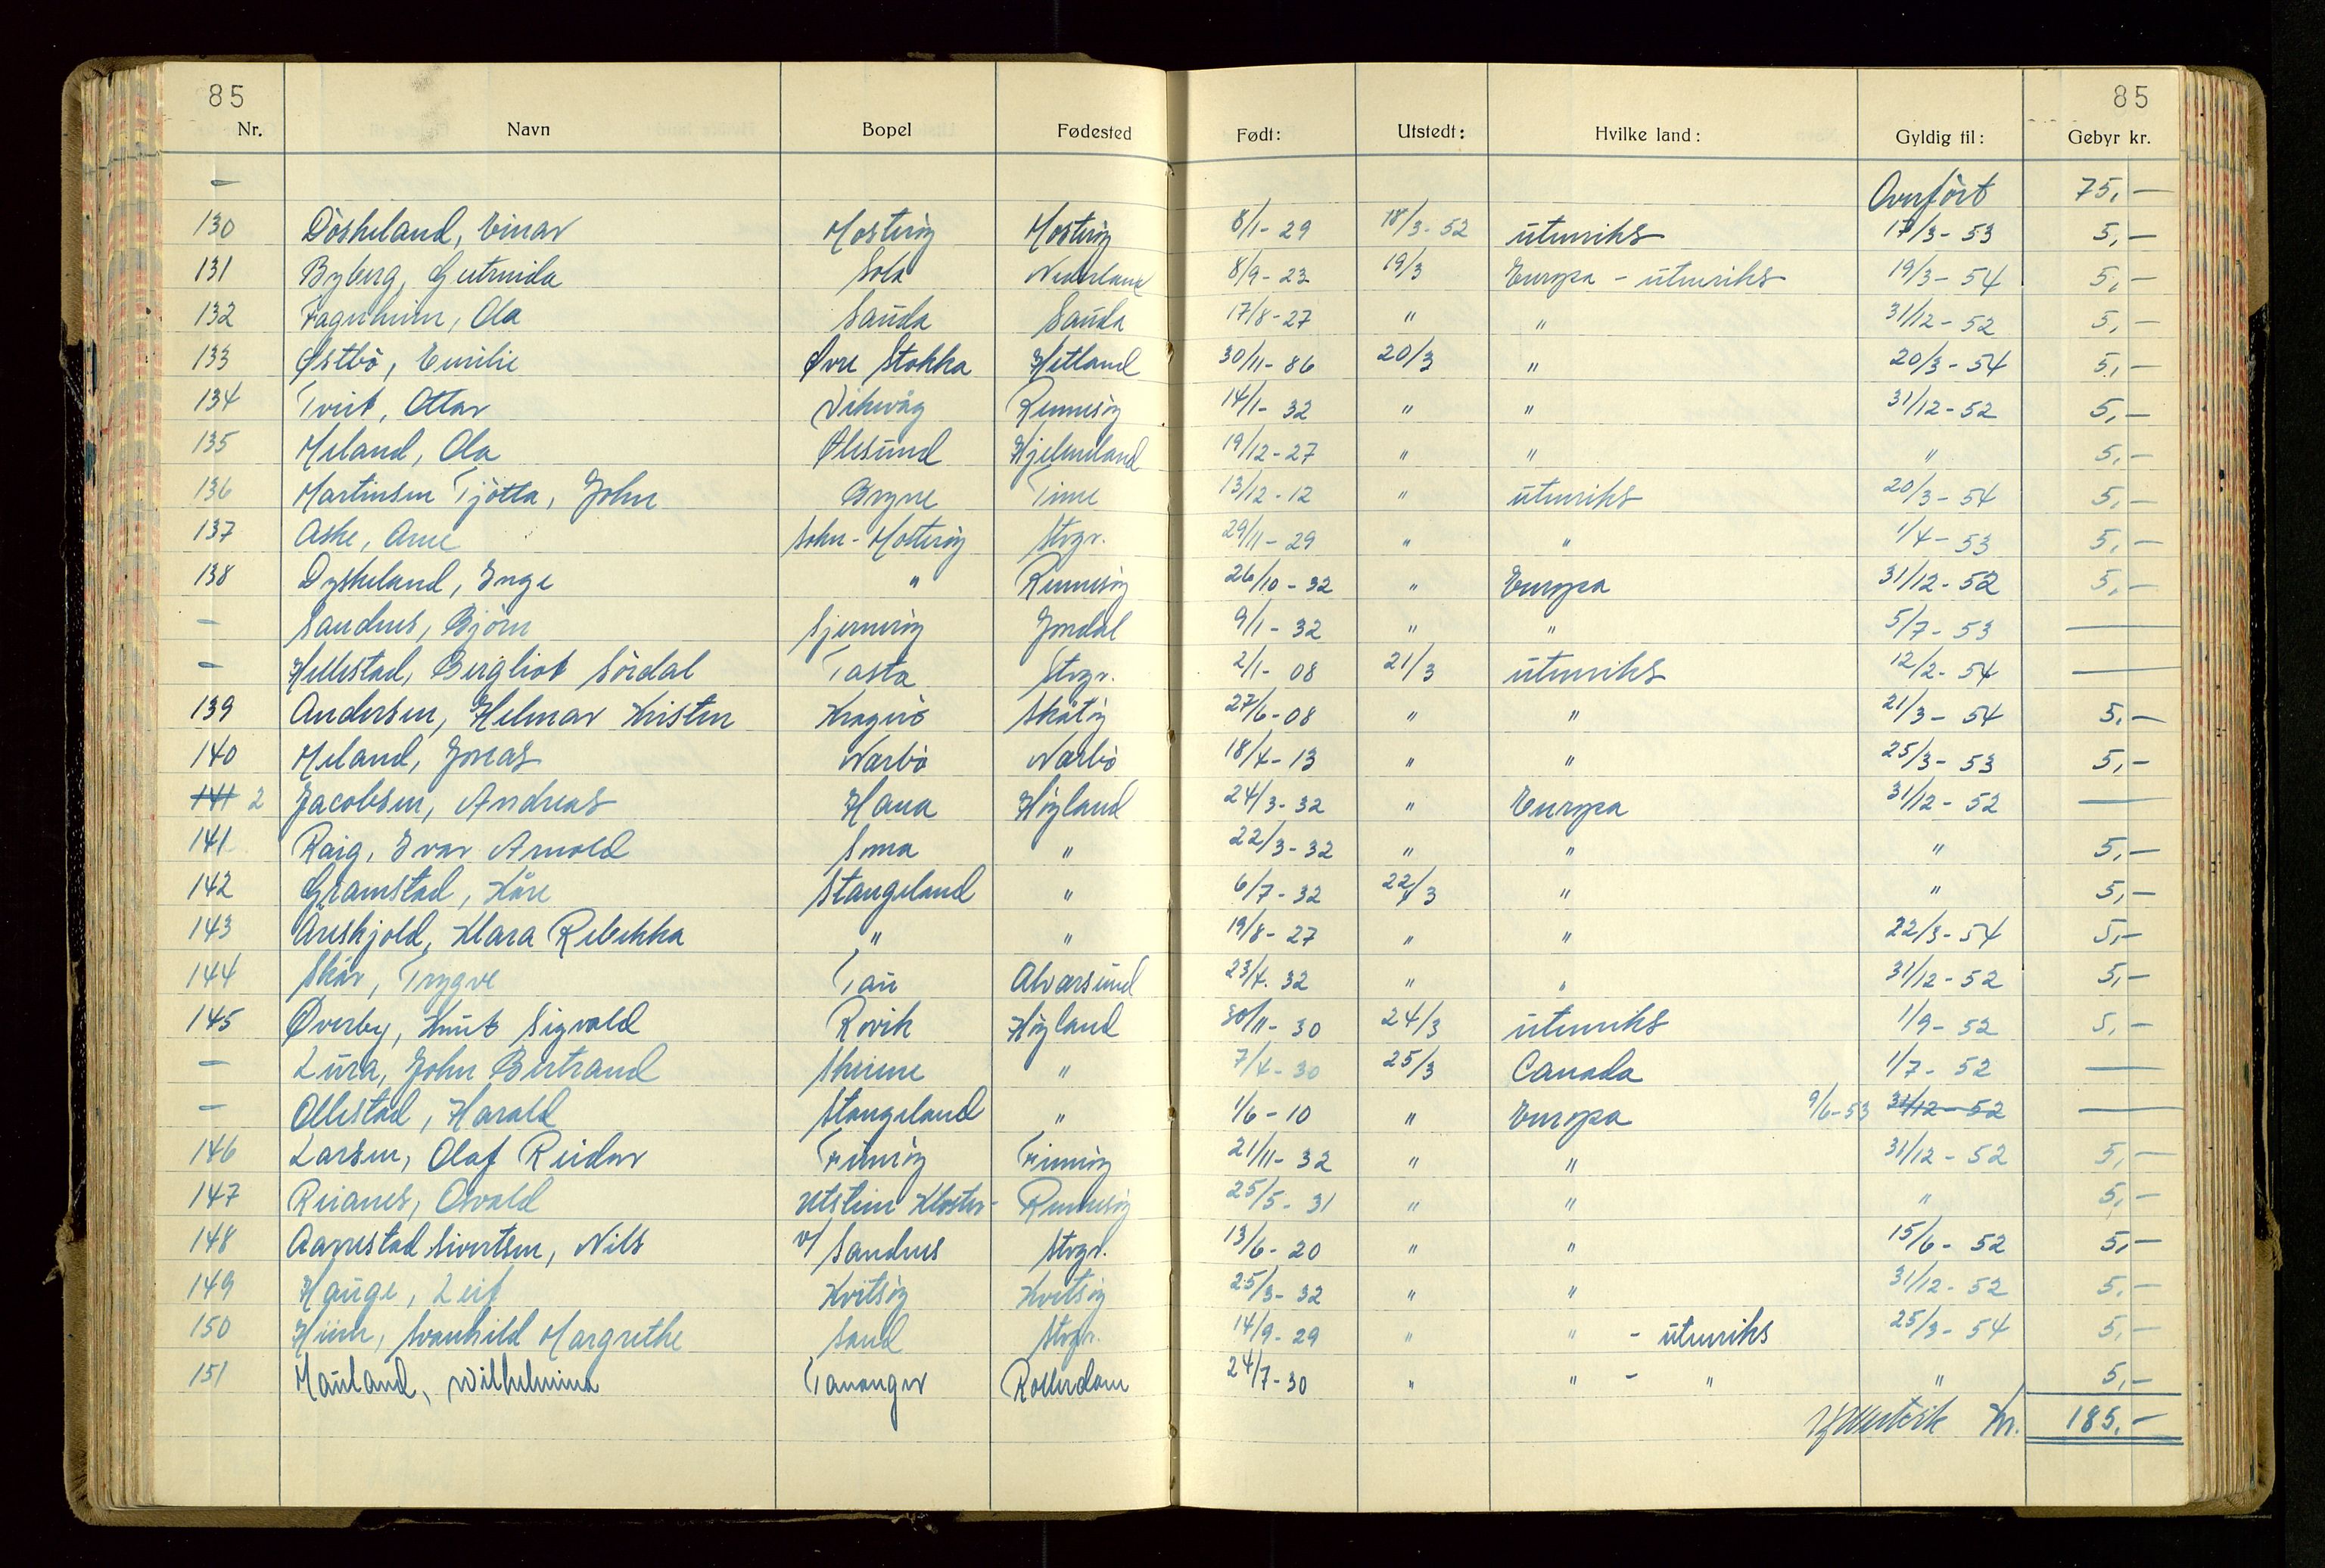 85 85
Nr. Navn Bopel Fødested Født: Utstedt: Hvilke land: Gyldig til: Gebyr kr.
— Overført 75,—
130 Døskeland, Einar Mosterøy Mosterøy 8/1-29 18/3-52 utenriks 17/3-53 5,—
131 Byberg, Gertruida Sola Nederland 8/9-23 19/3 Europa - utenriks 19/3-54 5,—
132 Fagerheim, Ola Sauda Sauda 17/8-27 " " 31/12-52 5,—
133 Østbö, Emilie Øvre Stokka Hetland 30/11-86 20/3 " 20/3-54 5,—
134 Tveit, Ottar Vikevåg Rennesöy 14/1-32 " " 31/12-52 5,—
135 Meland, Ola Ålesund Hjelmeland 19/12-27 " " " 5,—
136 Martinsen Tjötta, John Bryne Time 13/12-12 " utenriks 20/3-54 5,—
137 Aske, Arne Sokn-Mosteröy Stvgr. 29/11-29 " " 1/4-53 5,—
138 Dyskeland, Inge " Rennesöy 26/10-32 " Europa 31/12-52 5,—
— Sandnes, Björn Sjerneröy Jondal 9/1-32 " " 5/7-53 —
— Hellestad, Bergliot Sördal Tasta Stvgr. 2/1-08 21/3 utenriks 12/2-54 —
139 Andersen, Helmar Kristen Kragerö Skåtöy 27/6-08 " " 21/3-54 5,—
140 Meland, Jonas Nærbö Nærbö 18/4-13 " " 25/3-53 5,—
141 2 Jacobsen, Andreas Hana Höyland 24/3-32 " Europa 31/12-52 —
141 Roig, Ivar Arnold Soma " 22/3-32 " " " 5,—
142 Gramstad, Kåre Stangeland " 6/7-32 22/3 " " 5,—
143 Areskjold, Klara Rebekka " " 19/8-27 " " 22/3-54 5,—
144 Skår, Trygve Tau Alversund 23/4.32 " " 31/12-52 5,—
145 Øverby, Knut Sigvald Rovik Höyland 30/11-30 24/3 utenriks 1/9-52 5,—
— Lura, John Bertrand Skeiene " 7/4-30 25/3 Canada 1/7-52 —
— Ollestad, Harald Stangeland " 1/6-10 " Europa 9/6-53 31/12-52 —
146 Larsen, Olaf Reidar Finnöy Finnöy 21/11-32 " " 31/12-52 5,—
147 Reianes, Osvald Utstein Kloster- Rennesöy 25/5-31 " " " 5,—
148 Aarrestad Sivertsen, Nils v/ Sandnes Stvgr. 13/6-20 " " 15/6-52 5,—
149 Hauge, Leif Kvitsöy Kvitsöy 25/3-32 " " 31/12-52 5,—
150 Hiim, Svanhild Margrethe Sand Stvgr. 14/9-29 " " - utenriks 25/3-54 5,—
151 Mauland, Wilhelmina Tananger Rotterdam 24/7-30 " " - " " 5,—
Kr. 185,—